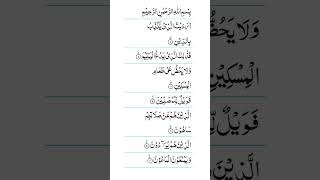 بِسْمِ اللهِ الرَّحْمٰنِ الرَّحِيْمِ
اَرَءَيْتَ الَّذِيْ يُكَذِّبُ
بِالدِّيْنِ ۝
فَذٰلِكَ الَّذِيْ يَدُعُّ الْيَتِيْمَ ۝
وَلَا يَحُضُّ عَلٰى طَعَامِ
الْمِسْكِيْنِ ۝
فَوَيْلٌ لِّلْمُصَلِّيْنَ ۝
الَّذِيْنَ هُمْ عَنْ صَلَاتِهِمْ
سَاهُوْنَ ۝
الَّذِيْنَ هُمْ يُرَآءُوْنَ ۝
وَيَمْنَعُوْنَ الْمَاعُوْنَ ۝